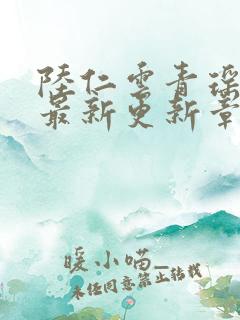 陸仁雲青瑤
最新更新章
暖小喵_
未任同意禁止转载